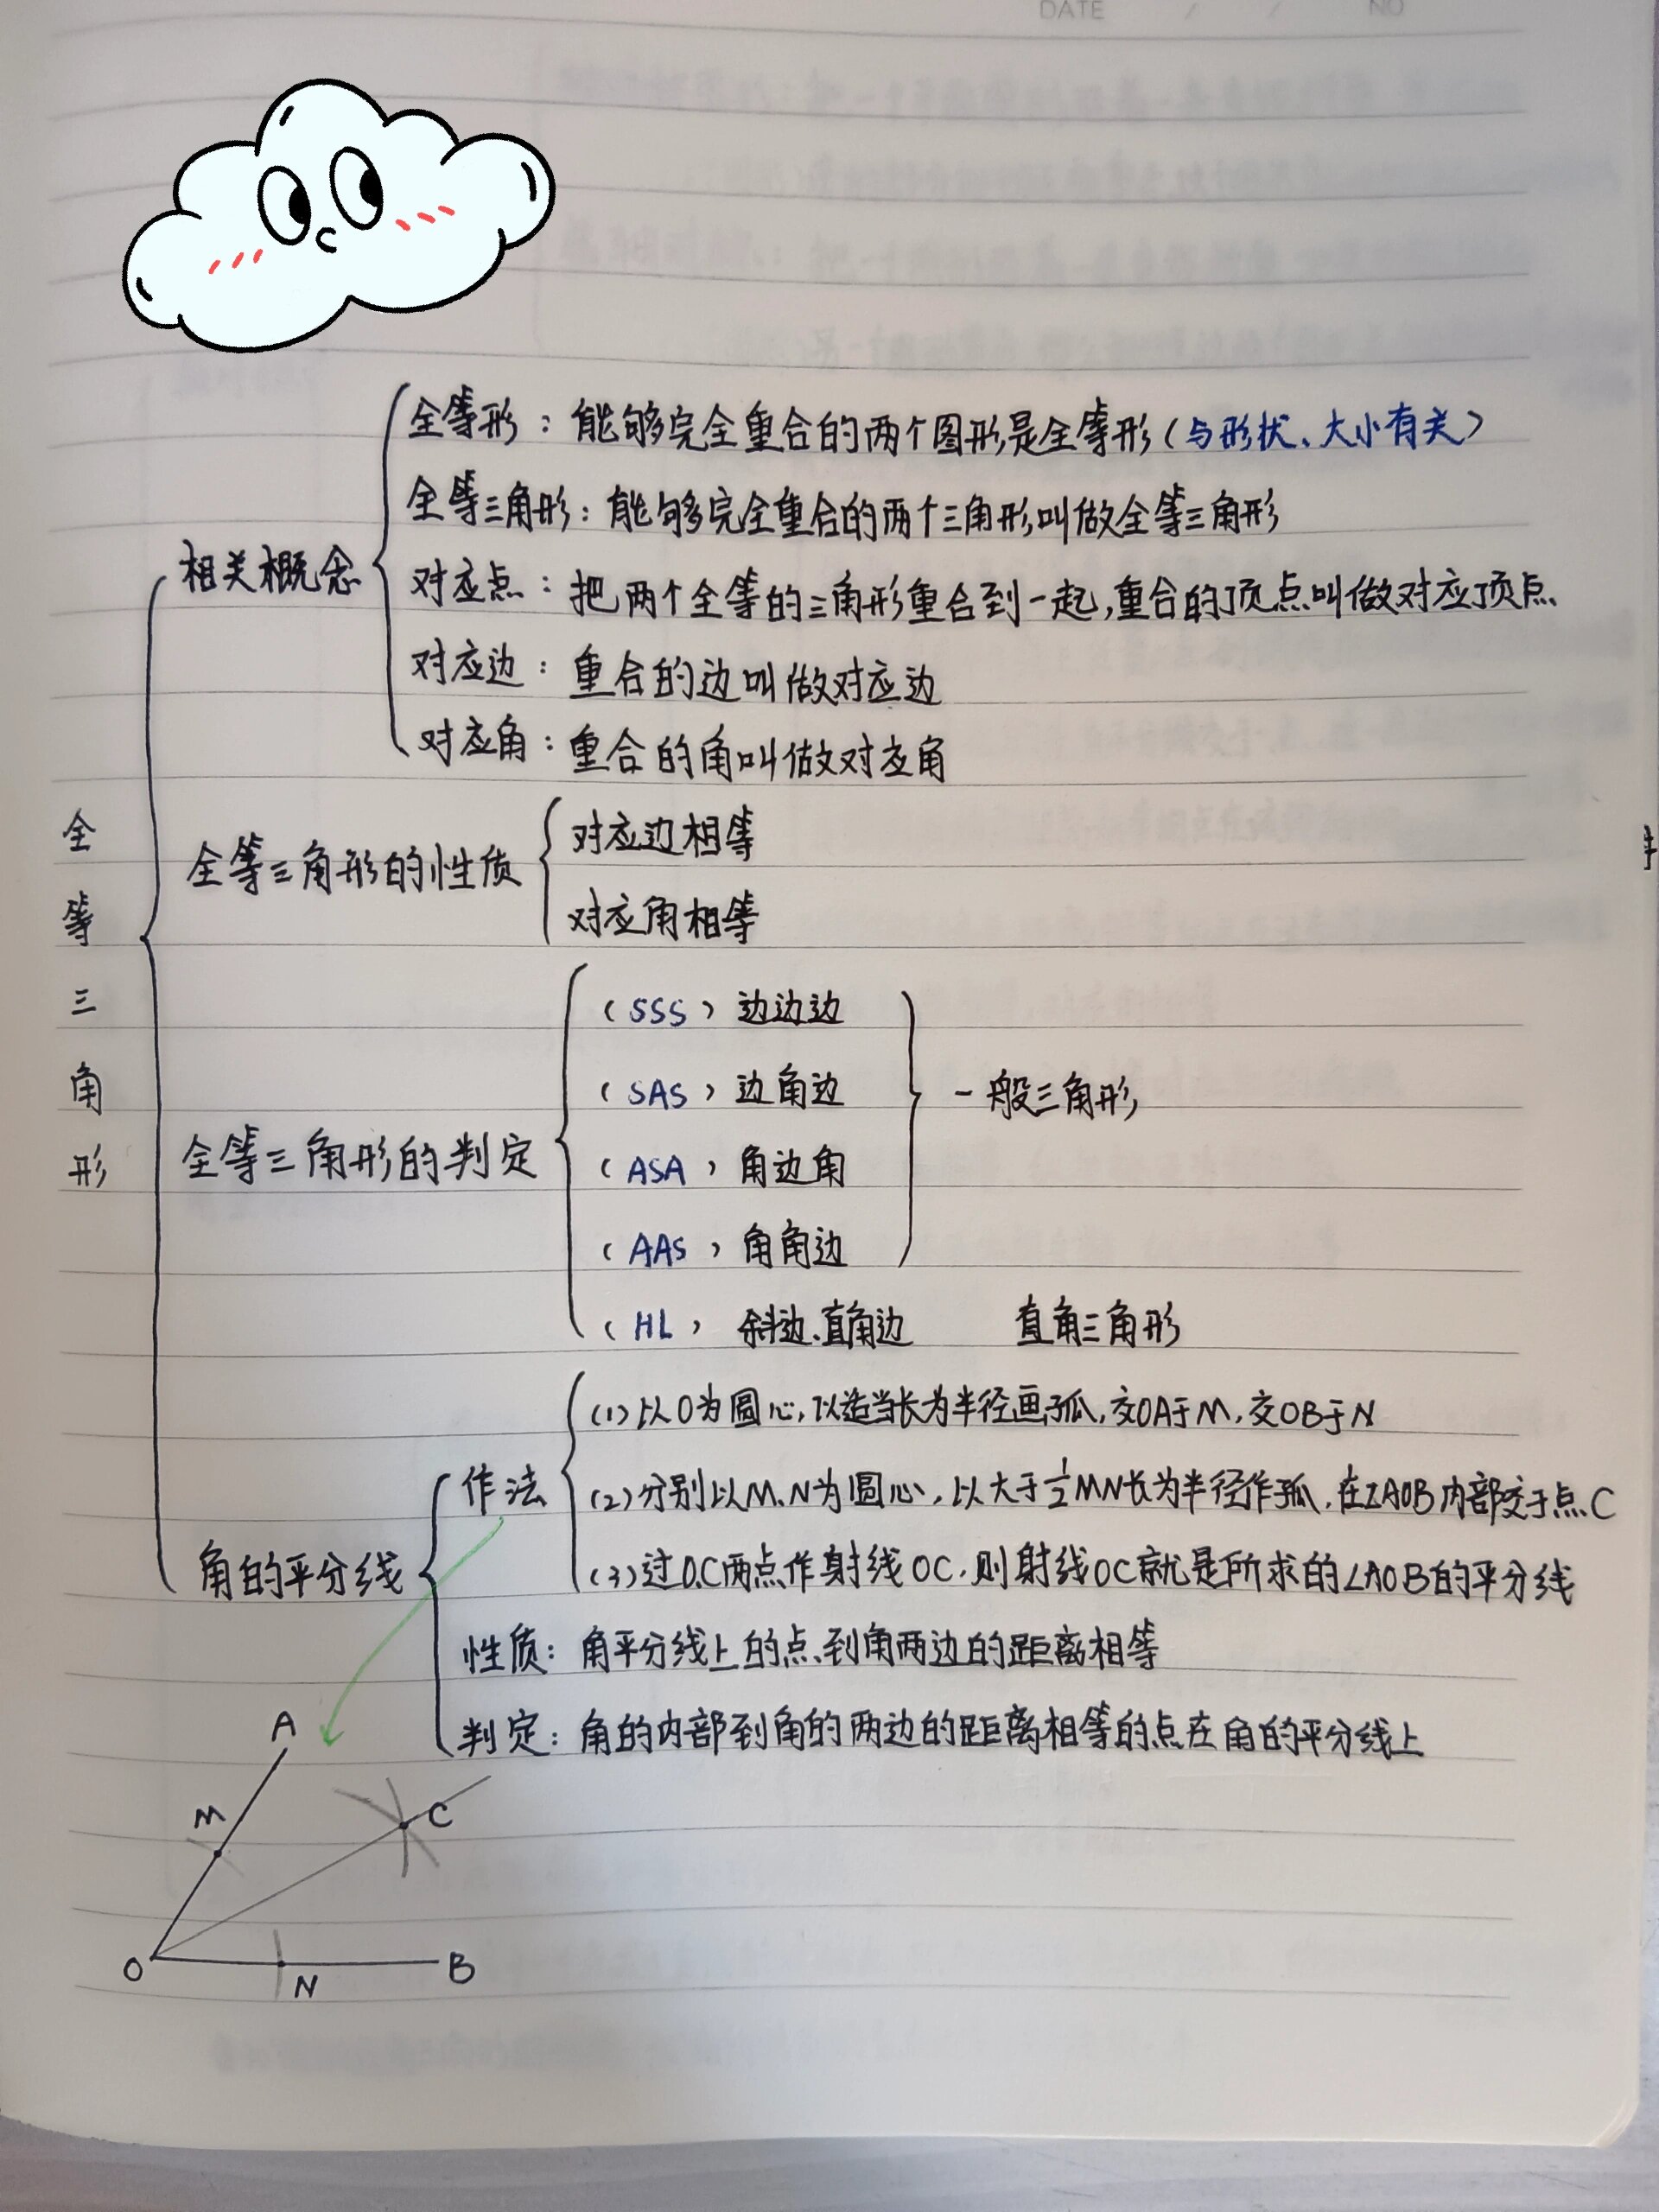 DATE / / NO
全等形：能够完全重合的两个图形是全等形（与形状、大小有关）
全等三角形：能够完全重合的两个三角形叫做全等三角形
相关概念
对应点：把两个全等的三角形重合到一起,重合的顶点叫做对应顶点
对应边：重合的边叫做对应边
对应角：重合的角叫做对应角
全等三角形
全等三角形的性质
对应边相等
对应角相等
（SSS）边边边
（SAS）边角边
一般三角形
全等三角形的判定
（ASA）角边角
（AAS）角角边
（HL）斜边、直角边 直角三角形
(1)以O为圆心,以适当长为半径画弧,交OA于M,交OB于N
作法
(2)分别以M、N为圆心,以大于½MN长为半径作弧,在∠AOB内部交于点C
角的平分线
(3)过O、C两点作射线OC,则射线OC就是所求的∠AOB的平分线
性质：角平分线上的点到角两边的距离相等
判定：角的内部到角的两边的距离相等的点在角的平分线上
A
M
C
O
N
B